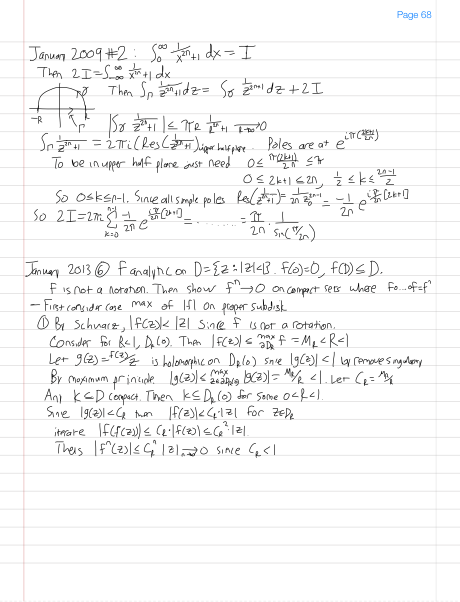 Page 68
January 2009 #2 : ∫₀^∞ 1/(x²ⁿ+1) dx = I
Then 2I = ∫_{-∞}^∞ 1/(x²ⁿ+1) dx
Then ∫_Γ 1/(z²ⁿ+1) dz = ∫_γ 1/(z²ⁿ+1) dz + 2I
-R R Γ
|∫_γ 1/(z²ⁿ+1)| ≤ πR 1/(R²ⁿ+1) → 0
∫_Γ 1/(z²ⁿ+1) = 2πi (Res(1/(z²ⁿ+1)) upper half plane . Poles are at e^{iπ(2k+1)/2n}
To be in upper half plane just need 0 ≤ π(2k+1)/2n ≤ π
0 ≤ 2k+1 ≤ 2n, 1/2 ≤ k ≤ (2n-1)/2
So 0≤k≤n-1. Since all simple poles Res(1/(z²ⁿ+1)) = 1/2n = -1/2n e^{iπ/2n[2k+1]}
So 2I = 2πi Σ_{k=0}^{n-1} -1/2n e^{iπ/2n[2k+1]} = ........ = π/2n · 1/sin(π/2n)
January 2013 ⑥ F analytic on D = {z : |z|<1}. f(0)=0, f(D) ≤ D.
F is not a rotation. Then show fⁿ → 0 on compact sets where fo...of=fⁿ
- First consider case max of |f| on proper subdisk
① By Schwarz, |f(z)|<|z| since f is not a rotation.
Consider for R<1, D_R(0). Then |f(z)| ≤ max_{∂D_R} f = M_R < R < 1
Let g(z) = f(z)/z is holomorphic on D_R(0) since |g(z)| < 1 by remove singularity
By maximum principle |g(z)| ≤ max |g(z)| = M_R/R < 1. Let C_R = M_R/R
Any K ⊆ D compact. Then K ⊆ D_R(0) for some 0<R<1.
Since |g(z)|<C_R then |f(z)|<C_R·|z| for z∈D_R
iterate |f(f(z))| ≤ C_R·|f(z)| ≤ C_R²·|z|
Thus |fⁿ(z)| ≤ C_Rⁿ |z| → 0 since C_R < 1